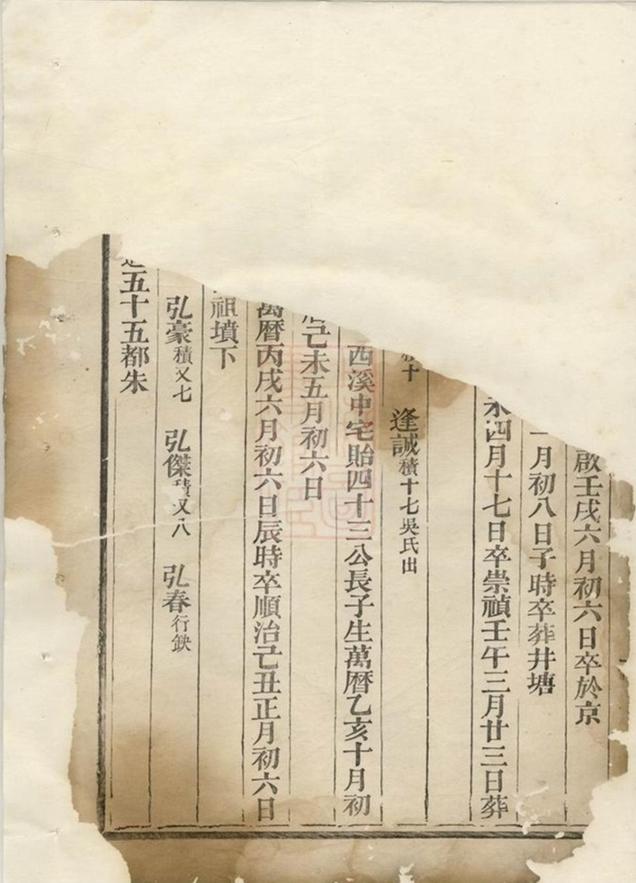 啟壬戌六月初六日卒於京
月初八日子時卒葬井塘
未四月十七日卒崇禎壬午三月廿三日葬
十 逢誠積十七吳氏出
西溪中宅貽四十三公長子生萬曆乙亥十月初
己未五月初六日
萬曆丙戌六月初六日辰時卒順治己丑正月初六日
祖墳下
弘豪積又七 弘傑積又八 弘春行鈌
五十五都朱